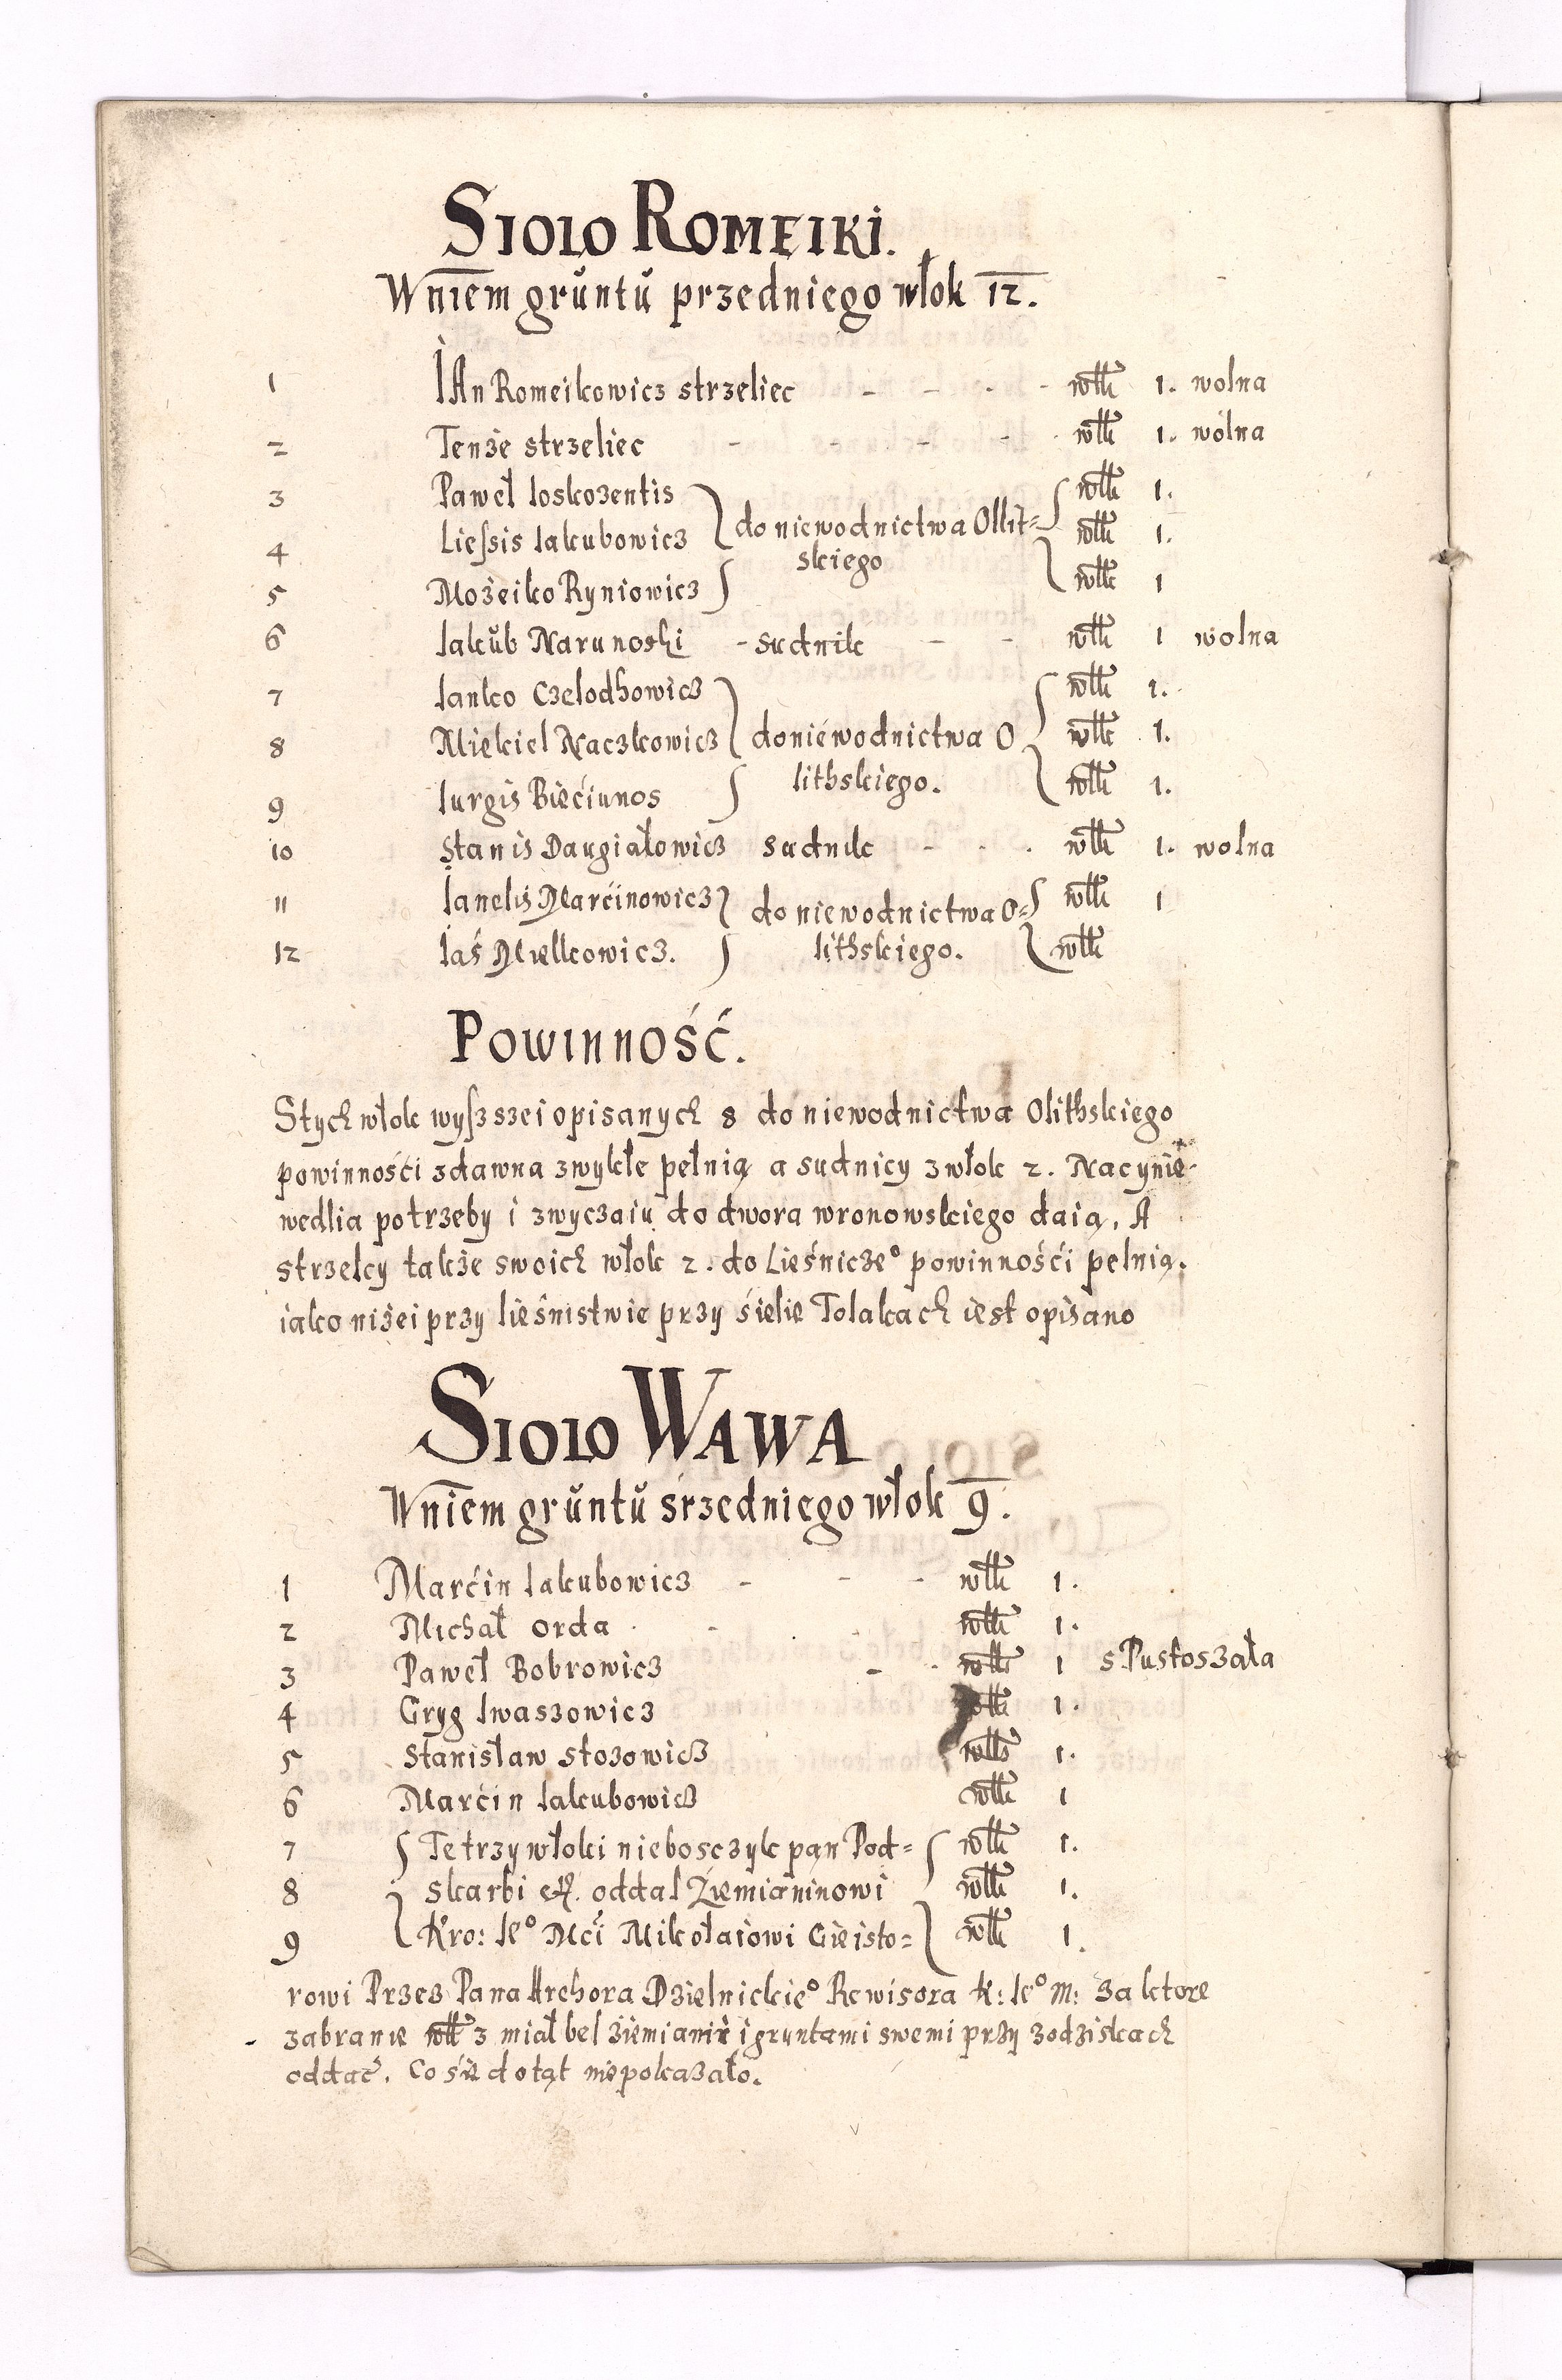 Sioło Romeiki.
Wniem gruntu przedniego włok 12.
1 Ian Romeikowicz strzeliec - - - - włk 1. wolna
2 Tenże strzeliec - - - - włk 1. wolna
3 Paweł Ioskozentis włk 1.
do niewodnictwa Ollit=
4 Liessis Iakubowicz włk 1.
skiego
5 Możeiko Ryniowicz włk 1
6 Iakub Narunoski - sudnik - - włk 1 wolna
7 Ianko Czelodhowicz włk 1.
8 Miekiel Naczkowicz do niewodnictwa O włk 1.
lithskiego.
9 Iurgis Biećiunos włk 1.
10 Stanis Daugiałowicz sudnik - - . włk 1. wolna
11 Ianelis Marćinowicz do niewodnictwa O= włk 1
12 Iaś Mielkowicz. lithskiego. włk
Powinność.
Stych włok wyższei opisanych 8 do niewodnictwa Olithskiego
powinnośći zdawna zwykłe pełnią a sudnicy z włok 2. Naczynie
wedlia potrzeby i zwyczaiu do dwora wronowskiego daią. A
strzelcy także swoich włok 2. do Lieśnicze° powinnośći pełnią.
iako niżei przy lieśnistwie przy śielie Tolakach iest opisano
Sioło Wawa
Wniem gruntu śrzedniego włok 9.
1 Marćin Iakubowicz - - - włk 1.
2 Michał Orda - włk 1.
3 Paweł Bobrowicz - - włk 1 sPustoszała
4 Gryg Iwaszowicz włk 1.
5 Stanisław Stozowicz włk 1.
6 Marćin Iakubowicz włk 1
7 Te trzy włoki nieboszczyk pan Pod= włk 1.
8 skarbi oddał Ziemianinowi włk 1.
9 Kro: Ie° Mći Mikołaiowi Gieisto= włk 1.
rowi Przez Pana Hrehora Dzielnickie° Rewisora K: Ie° M: za ktore
zabranie włk 3 miał bel ziemianie i gruntami swemi przy zodziskach
oddać. Co śię dotąt nie pokazało.